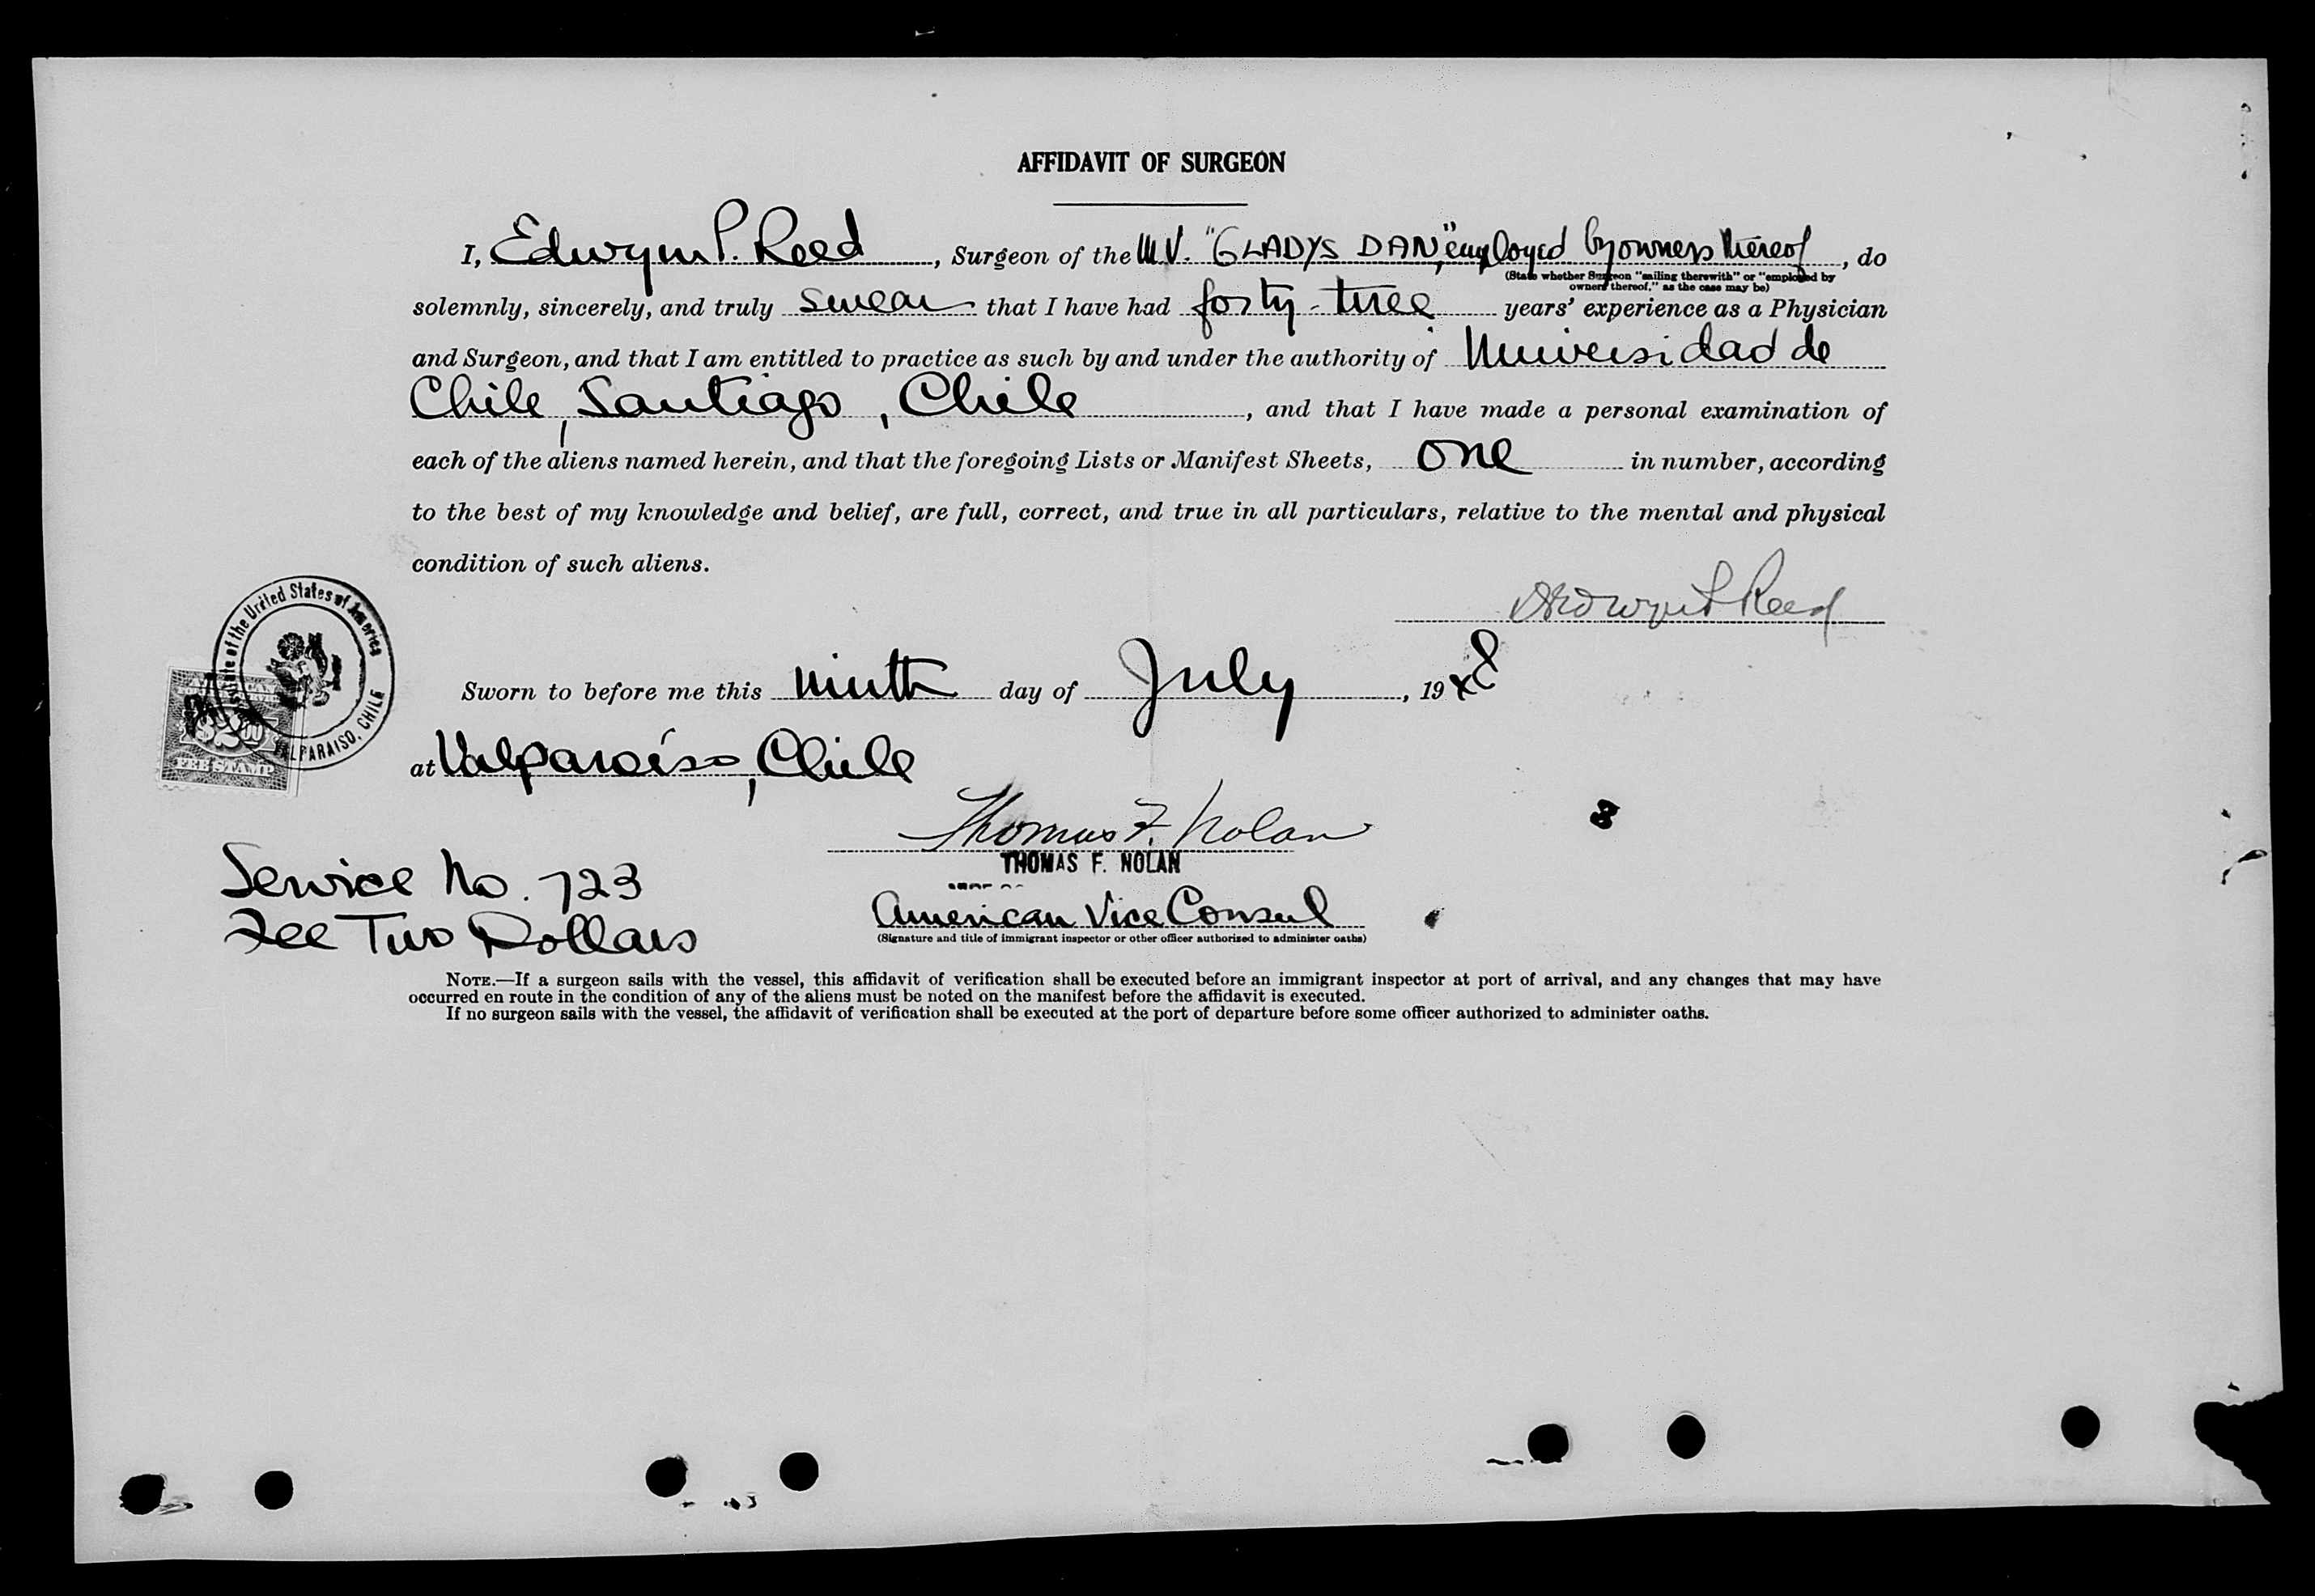 AFFIDAVIT OF SURGEON
I, Edwyn P. Reed, Surgeon of the M.V. "GLADYS DAN," employed by owners thereof, do
(State whether Surgeon "sailing therewith" or "employed by
owners thereof," as the case may be)
solemnly, sincerely, and truly swear that I have had forty-three years' experience as a Physician
and Surgeon, and that I am entitled to practice as such by and under the authority of Universidad de
Chile, Santiago, Chile, and that I have made a personal examination of
each of the aliens named herein, and that the foregoing Lists or Manifest Sheets, one in number, according
to the best of my knowledge and belief, are full, correct, and true in all particulars, relative to the mental and physical
condition of such aliens.
Reed
of the United States of America
VALPARAISO, CHILE
$2.00
FEE STAMP
Sworn to before me this ninth day of July, 1948
at Valparaiso, Chile
Thomas F. Nolan
THOMAS F. NOLAN
Service No. 723
Fee Two Dollars
American Vice Consul
(Signature and title of immigrant inspector or other officer authorized to administer oaths)
NOTE.—If a surgeon sails with the vessel, this affidavit of verification shall be executed before an immigrant inspector at port of arrival, and any changes that may have
occurred en route in the condition of any of the aliens must be noted on the manifest before the affidavit is executed.
If no surgeon sails with the vessel, the affidavit of verification shall be executed at the port of departure before some officer authorized to administer oaths.